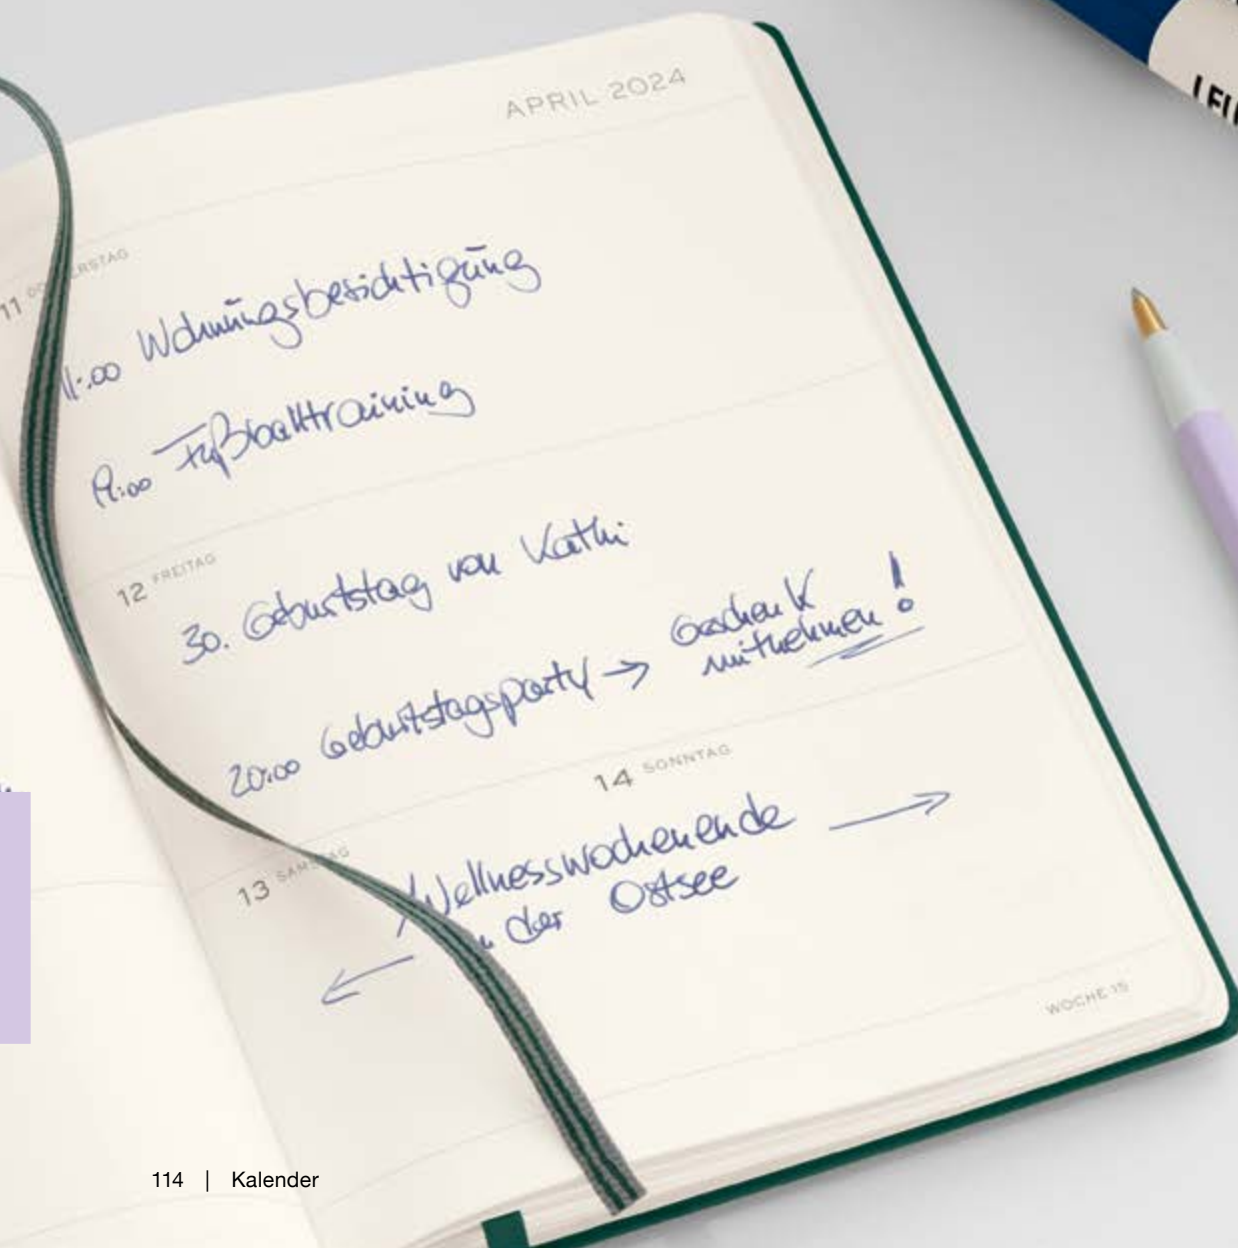 APRIL 2024
11 DONNERSTAG
11:00 Wohnungsbesichtigung
19:00 Fußballtraining
12 FREITAG
30. Geburtstag von Kathi
20:00 Geburtstagsparty → Geschenk
mitnehmen!
13 SAMSTAG
14 SONNTAG
Wellnesswochenende →
← an der Ostsee
WOCHE 15
114 | Kalender